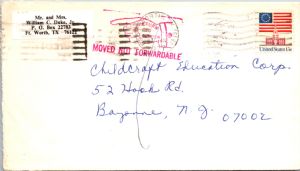 Mr. and Mrs.
William C. Duke, Jr.
P. O. Box 32783
Ft. Worth, TX
MOVED NOT FORWARDABLE
United States 13c
Childcraft Education Corp.
52 Hook Rd.
Bayonne, N. J.
07002